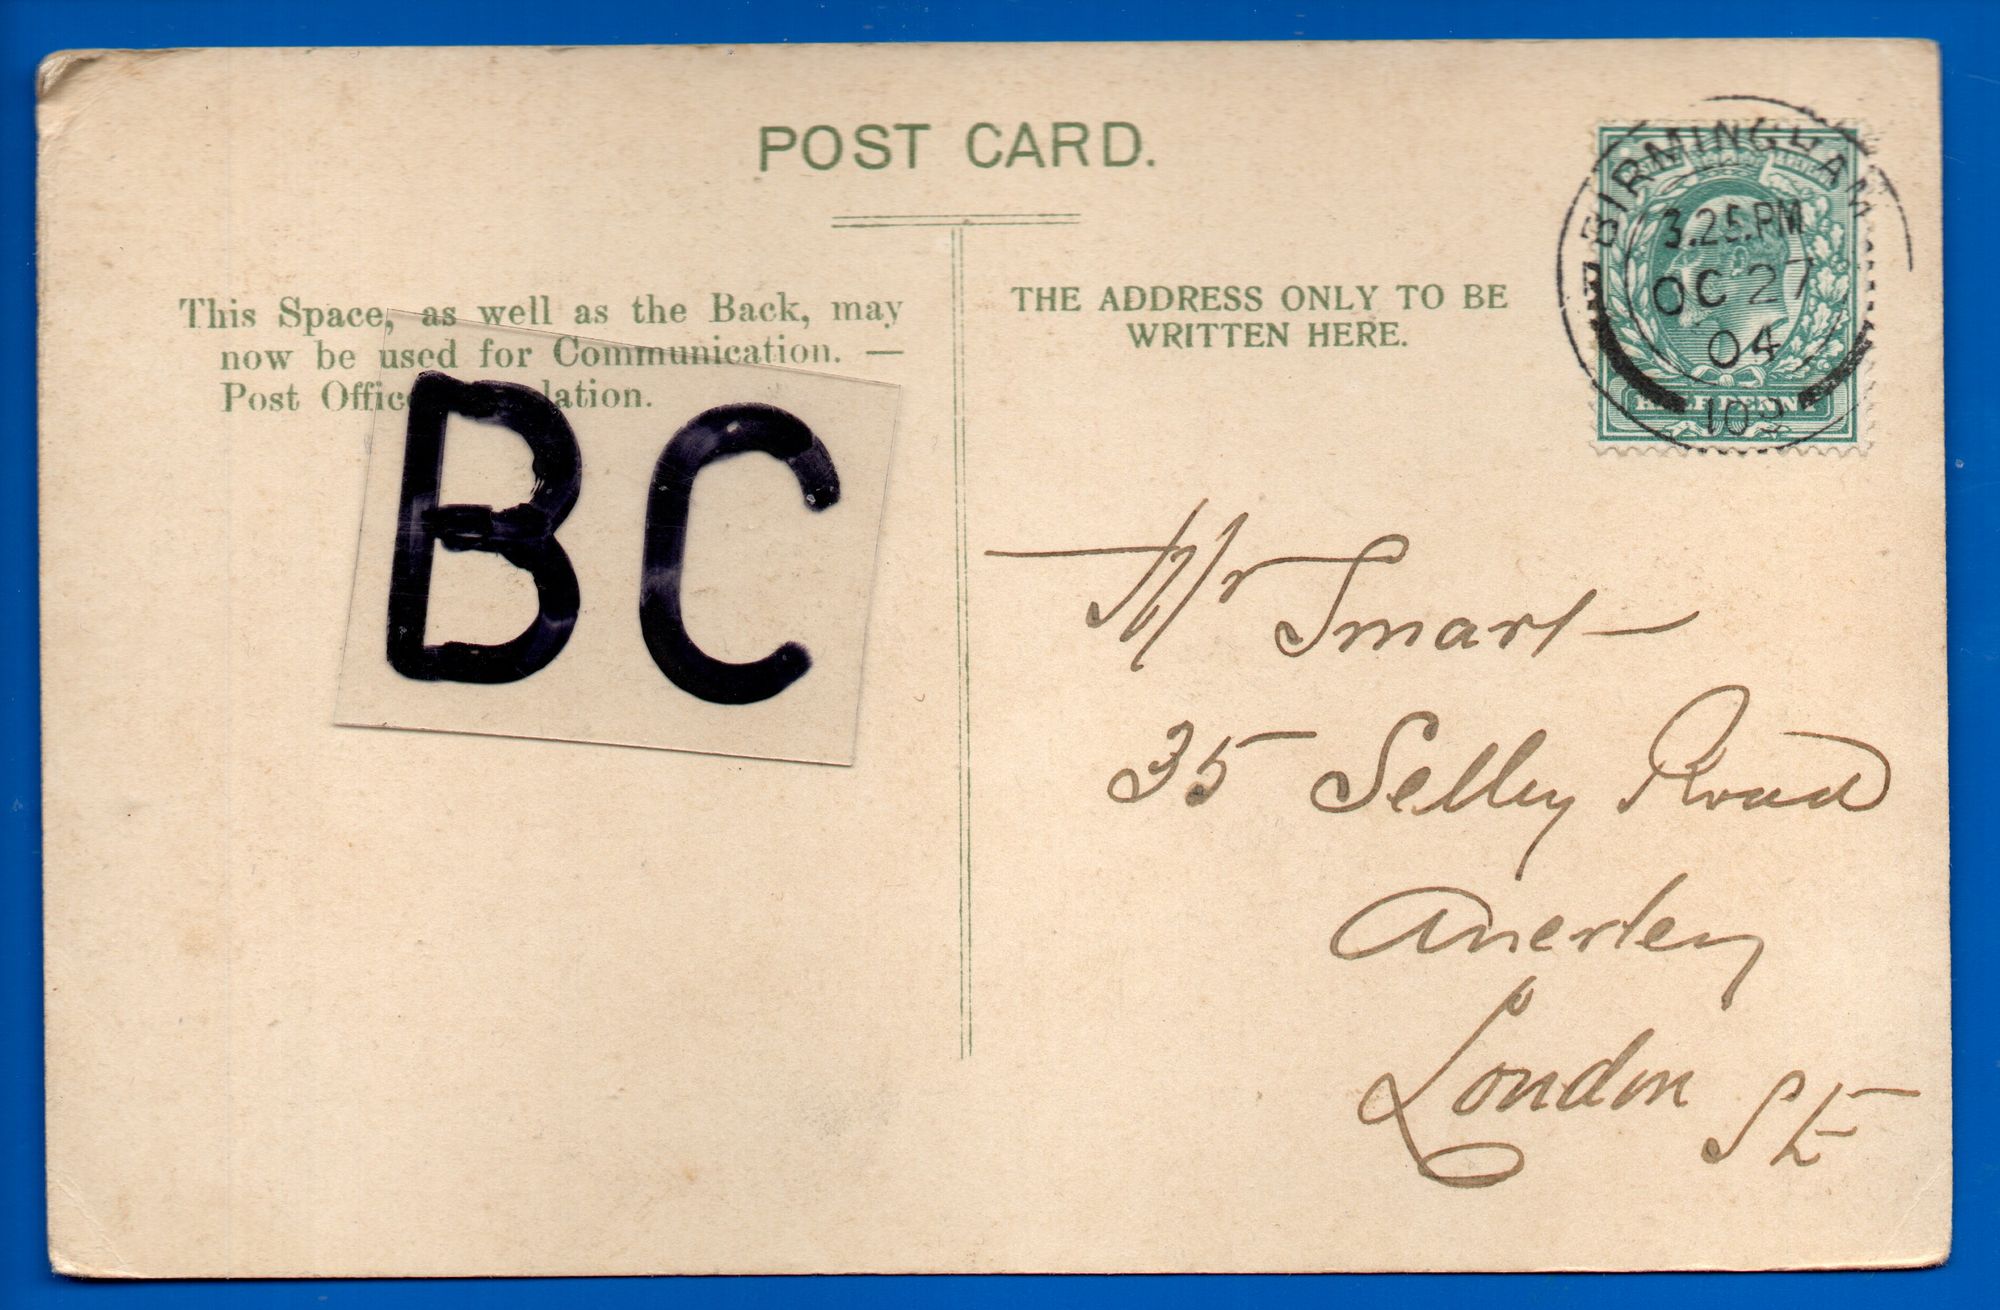 POST CARD.
This Space, as well as the Back, may
now be used for Communication. —
Post Office lation.
BC
THE ADDRESS ONLY TO BE
WRITTEN HERE.
BIRMINGHAM
3.25.PM
OC 27
04
HALFPENNY
Mr Smart
35 Selby Road
Anerley
London SE